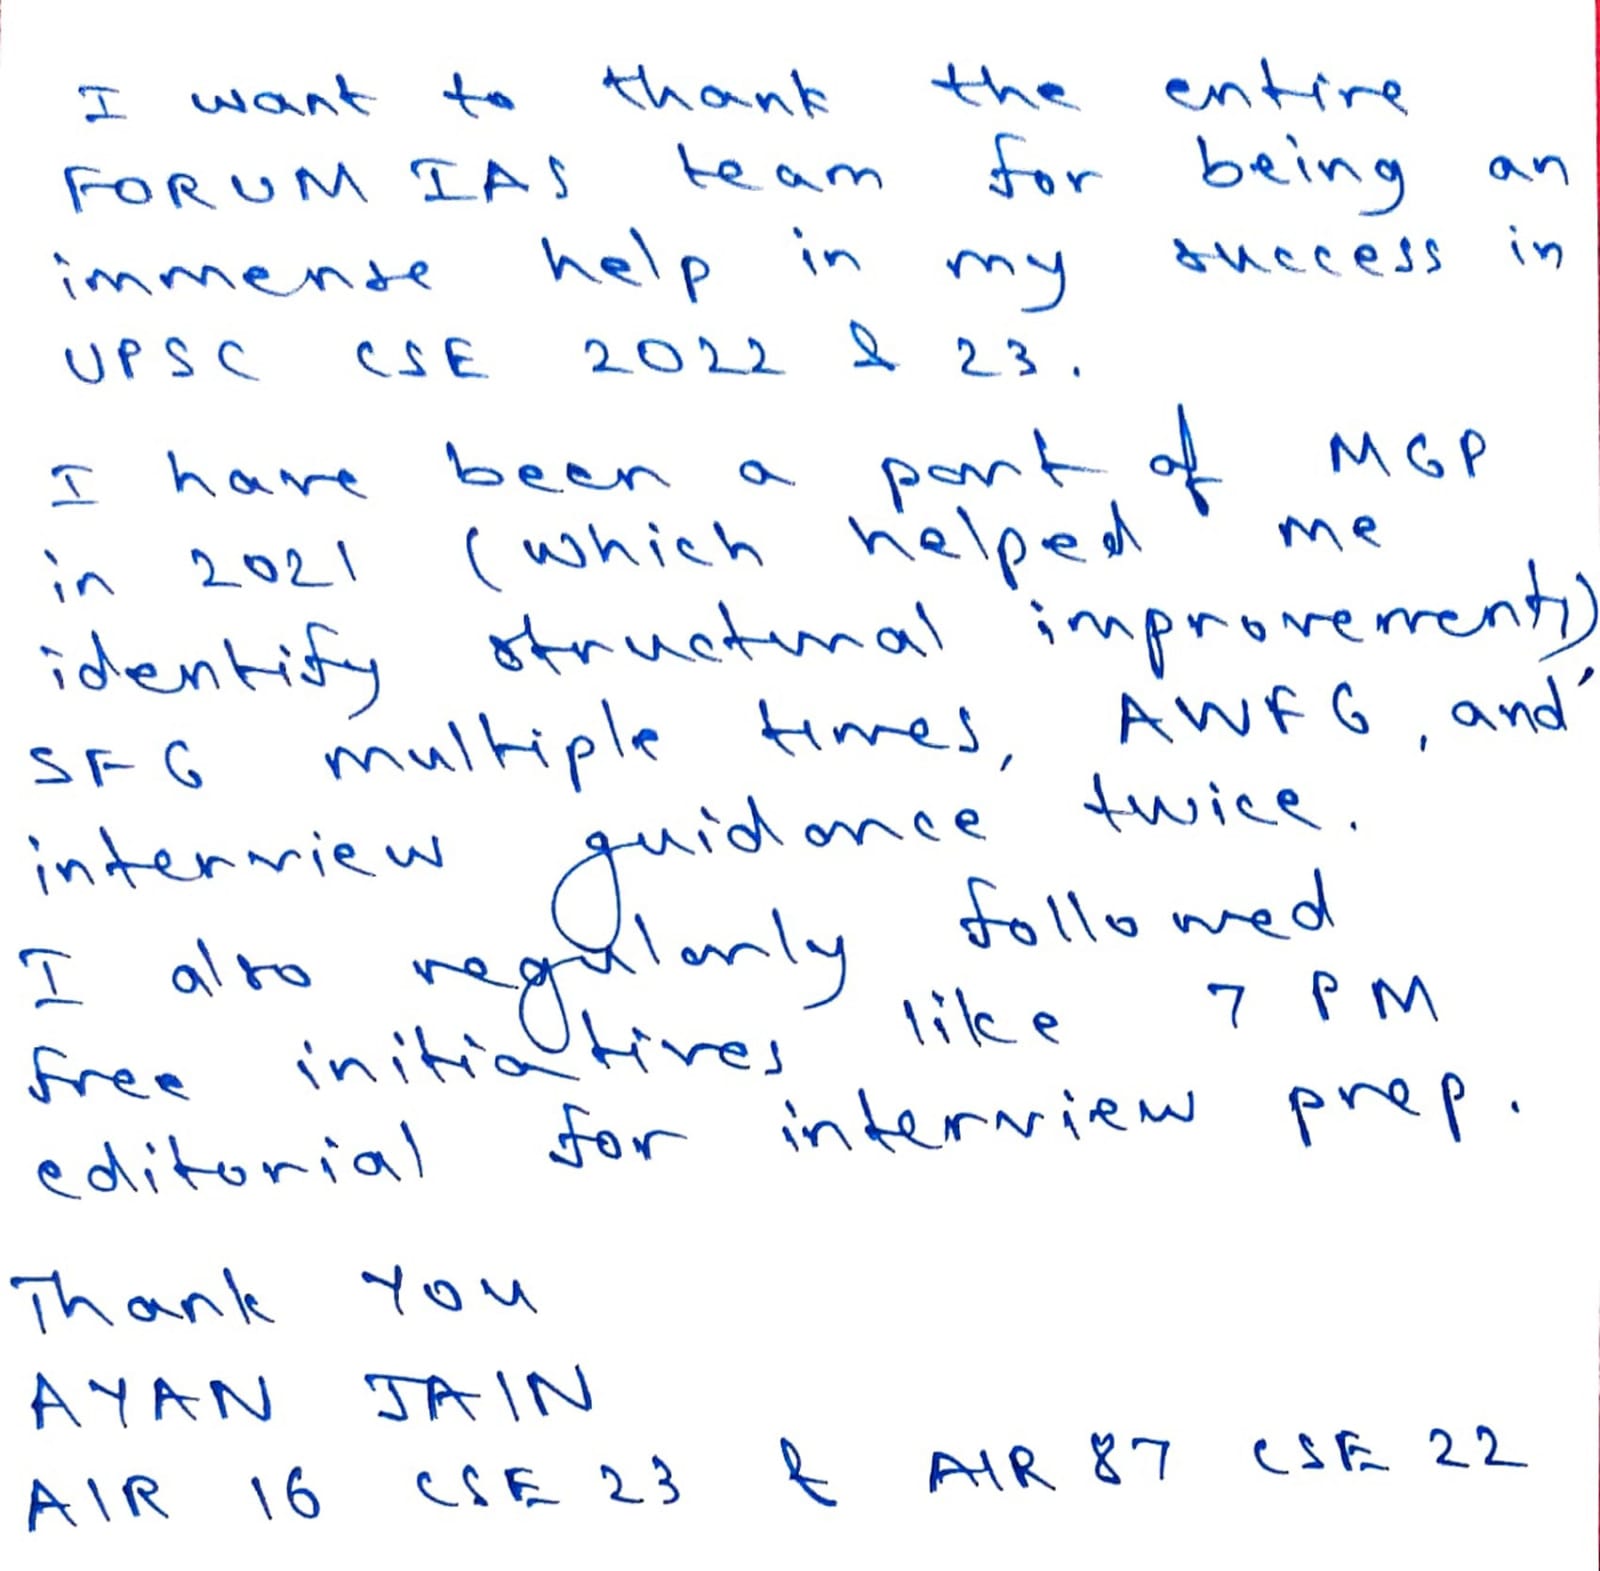 I want to thank the entire
FORUM IAS team for being an
immense help in my success in
UPSC CSE 2022 & 23.
I have been a part of MGP
in 2021 (which helped me
identify structural improvements),
SFG multiple times, AWFG, and
interview guidance twice.
I also regularly followed
free initiatives like 7 PM
editorial for interview prep.
Thank You
AYAN JAIN
AIR 16 CSE 23 & AIR 87 CSE 22